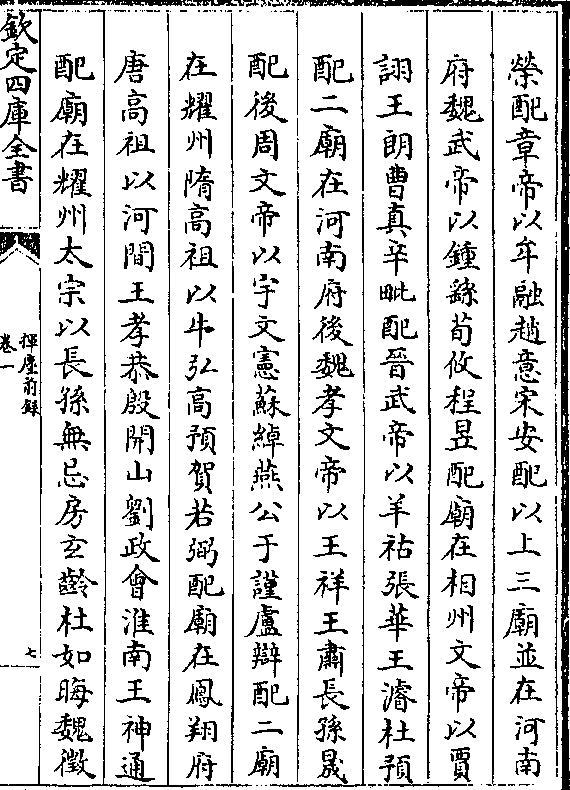 榮配章帝以牟融趙意宋安配以上三廟並在河南
府魏武帝以鍾繇荀攸程昱配廟在相州文帝以賈
詡王朗曹真辛毗配晉武帝以羊祜張華王濬杜預
配二廟在河南府後魏孝文帝以王祥王肅長孫晟
配後周文帝以宇文憲蘇綽燕公于謹盧辯配二廟
在耀州隋高祖以牛弘高預賀若弼配廟在鳳翔府
唐高祖以河間王孝恭殷開山劉政會淮南王神通
配廟在耀州太宗以長孫無忌房玄齡杜如晦魏徵
欽定四庫全書
揮麈前録
卷一
七